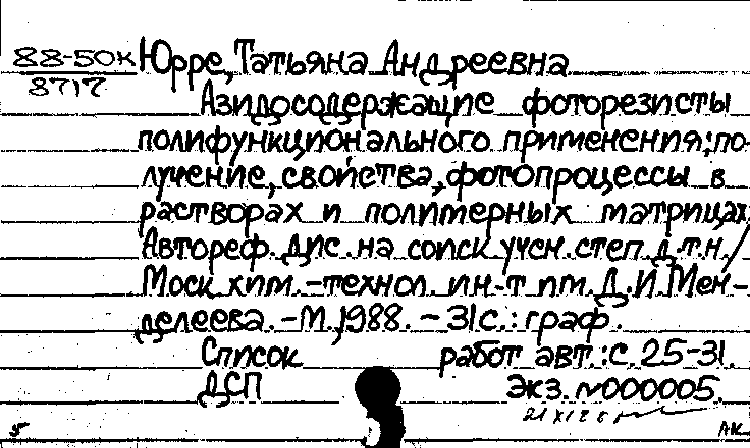 88-50к Юрре, Татьяна Андреевна
8717
Азидосодержащие фоторезисты
полифункционального применения: по-
лучение, свойства, фотопроцессы в
растворах и полимерных матрицах:
Автореф. дис. на соиск. учен. степ. д.т.н. /
Моск. хим.-технол. ин-т им. Д.И. Мен-
делеева. - М., 1988. - 31с.: граф.
Список работ авт.: с. 25-31.
ДСП Экз. №000005.
5 АК